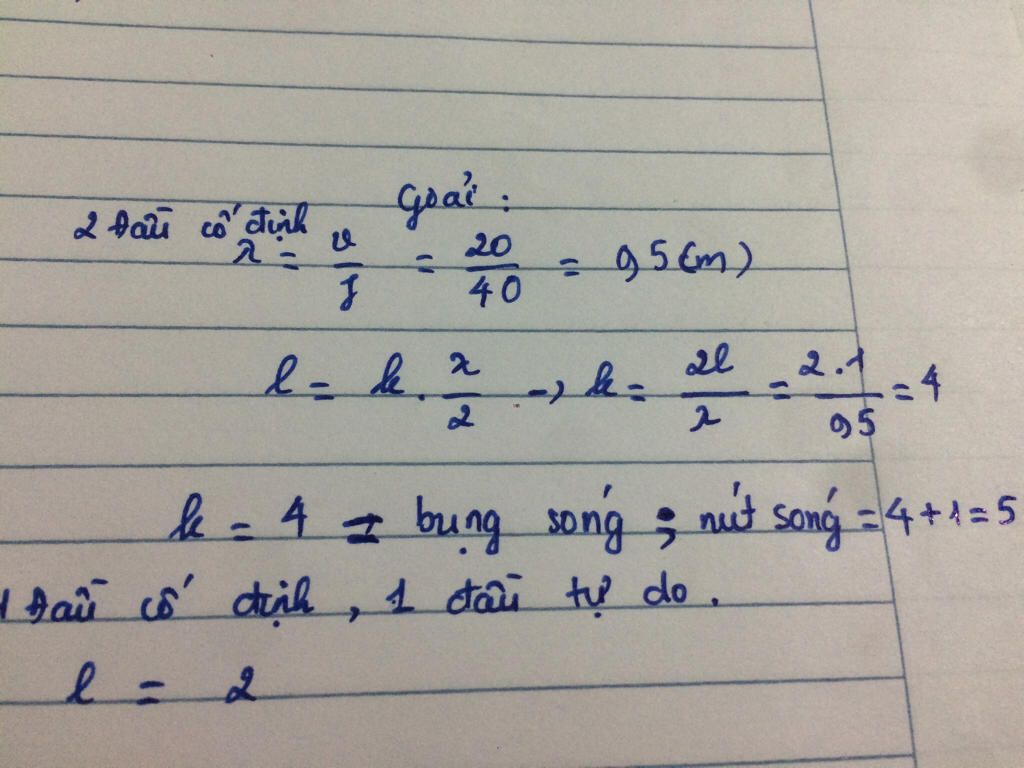 Giải:
2 Đầu cố định
λ = v/f = 20/40 = 0,5 (m)
l = k . λ/2 -> k = 2l/λ = 2.1/0,5 = 4
k = 4 = bụng sóng ; nút sóng = 4+1=5
1 Đầu cố định, 1 đầu tự do.
l = 2